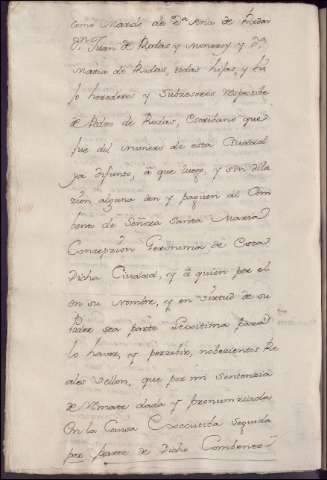 como Marido de D.ª Ana de Ruedas
D.ⁿ Juan de Rodas, y Monrroy y D.ª
Maria de Rodas, todos hijos, y
herederos y Subcesores respective
de Pedro de Rodas, Escribano que
fue del numero de esta Ciudad
ya difunto, à que luego, y sin dila
zion alguna den y paguen al Com
bento de Señora Santa Maria
Concepzion Geronima de esta
dicha Ciudad, y à quien por el
en su nombre, y en virtud de su
Poder sea parte lexitima para
lo haver, y percibir, nobezientos Re
ales vellon, que por mi sentenzia
de Remate dada y pronunciada
En la Causa Executiba seguida
por parte de dicho Combento